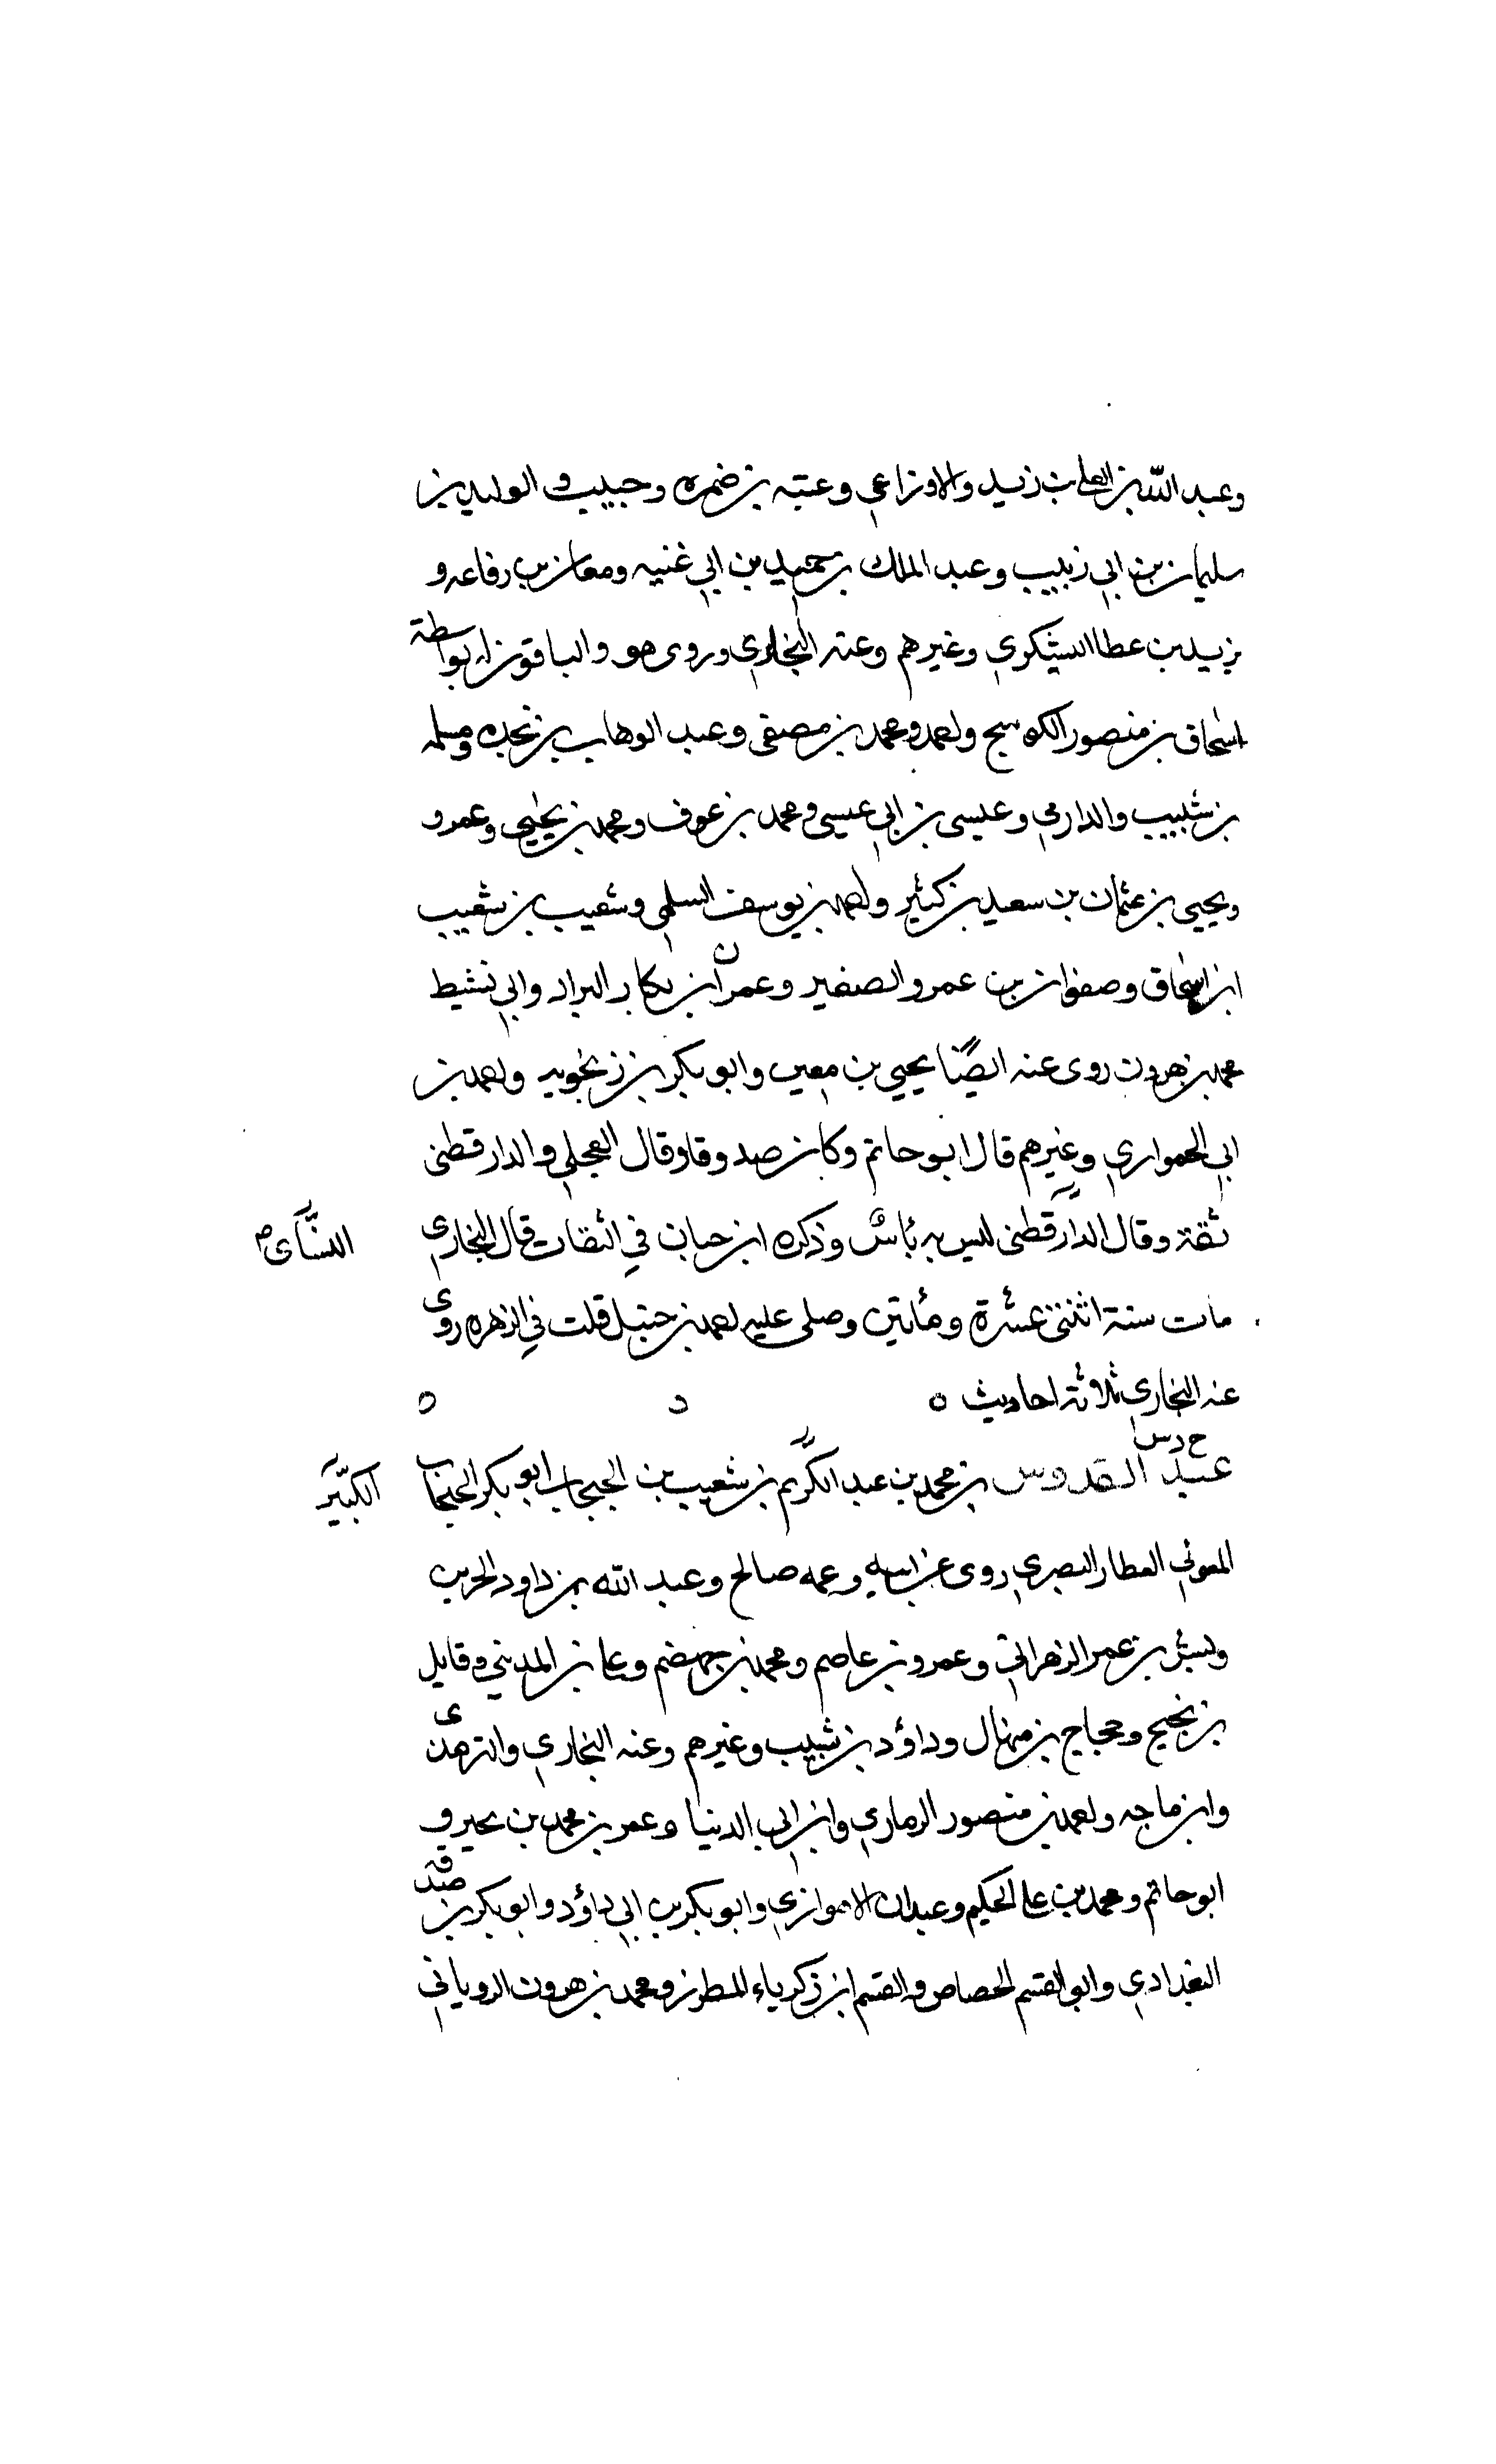 وعبد الله بن العلا بن زيد والاوزاعي وعتبه بن ضمره وحبيب والوليد بن
سليمان بن ابي زينب وعبد الملك بن حميد بن ابي غنيه ومعان بن رفاعه و
يزيد بن عطا اليشكري وغيرهم وعنه البخاري وروى هو والباقون له بواسطة
اسحاق بن منصور الكوسج واحمد ومحمد بن مصفى وعبد الوهاب بن نجده ومسلمه
بن شبيب والدارمي وعيسى بن ابي عيسى ومحمد بن عوف ومحمد بن يحيي وعمرو
ويحيي بن عثمان بن سعيد بن كثير واحمد بن يوسف السلمي وشعيب بن شعيب
ابن اسحاق وصفوان بن عمرو الصغير وعمران بن بكار البراد وابي نشيط
محمد بن هرون روى عنه ايضًا يحيي بن معين وابو بكر بن زنجويه واحمد بن
ابي الحواري وغيرهم قال ابو حاتم وكان صدوقا وقال العجلي والدارقطني
ثقة وقال الدارقطني ليس به بأس وذكره ابن حبان في الثقات قال البخاري
النسائي
مات سنة اثنتي عشرة ومأتين وصلى عليه احمد بن حنبل قلت في الزهره روى
عنه البخاري ثلاثة احاديث ه د ه
خ د س
عبد القدوس بن محمد بن عبد الكريم بن شعيب بن الحبحاب ابو بكر الحبحاب
الكبير
المعولي العطار البصري روى عن ابيه وعمه صالح وعبد الله بن داود الخريبي
وبشر بن عمر الزهراني وعمرو بن عاصم ومحمد بن جهضم وعلي بن المديني وقايل
بن نجيح وحجاج بن منهال وداؤد بن شبيب وغيرهم وعنه البخاري والترمذى
وابن ماجه واحمد بن منصور الرمادي وابن ابي الدنيا وعمر بن محمد بن بجير و
ابو حاتم ومحمد بن علي الحكيم وعبدان الاهوازي وابو بكر بن ابي داؤد وابو بكر بن صدقه
البغدادي وابو القسم الحصاص والقسم ابن زكرياء المطرز ومحمد بن هرون الروياني